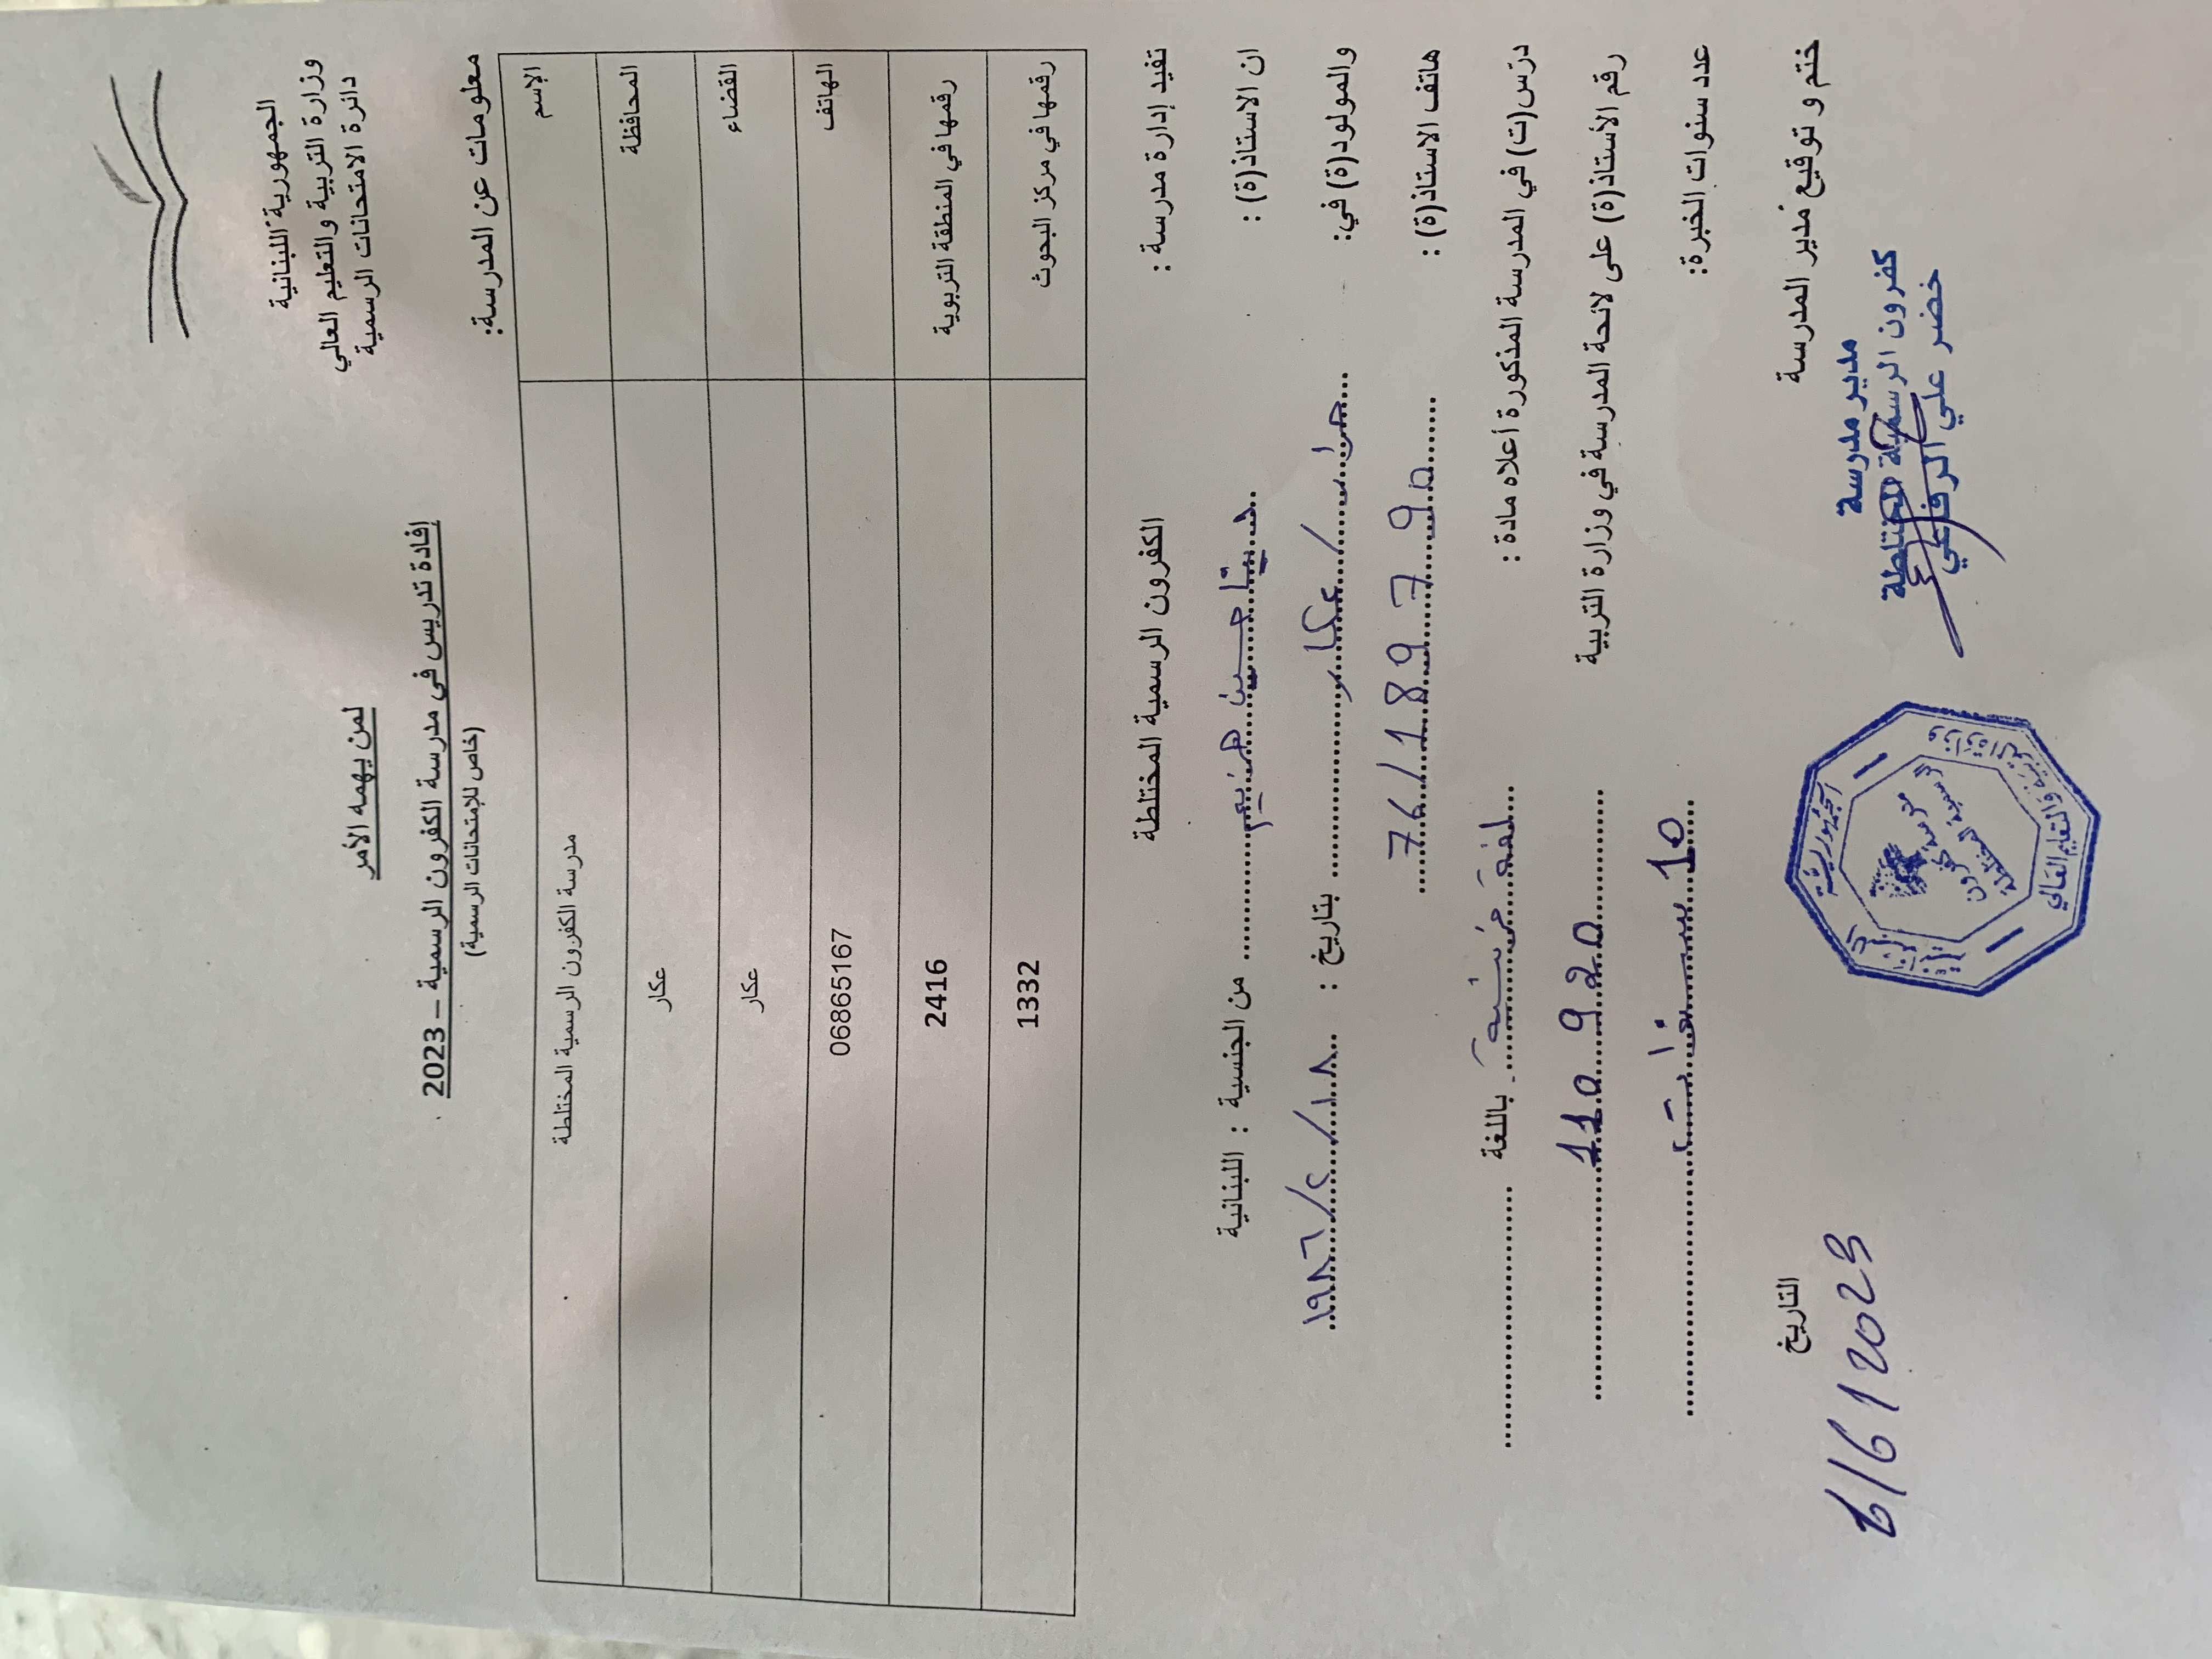 الجمهورية اللبنانية
وزارة التربية والتعليم العالي
دائرة الامتحانات الرسمية
لمن يهمه الأمر
إفادة تدريس في مدرسة الكفرون الرسمية – 2023
(خاص للإمتحانات الرسمية)
معلومات عن المدرسة:
الإسم مدرسة الكفرون الرسمية المختلطة
المحافظة عكار
القضاء عكار
الهاتف 06865167
رقمها في المنطقة التربوية 2416
رقمها في مركز البحوث 1332
تفيد إدارة مدرسة : الكفرون الرسمية المختلطة
ان الاستاذ(ة) : حسين من الجنسية : اللبنانية
والمولود(ة) في: / عكار بتاريخ : ١٨/٢/١٩٨٦
هاتف الاستاذ(ة) : 76/189790
درّس(ت) في المدرسة المذكورة أعلاه مادة : لغة فرنسية باللغة
رقم الأستاذ(ة) على لائحة المدرسة في وزارة التربية 110920
عدد سنوات الخبرة: 10 سنوات
ختم و توقيع مُدير المدرسة
التاريخ
مدير مدرسة
كفرون الرسمية المختلطة
خضر علي الرفاعي
6/6/2023
وزارة التربية والتعليم العالي